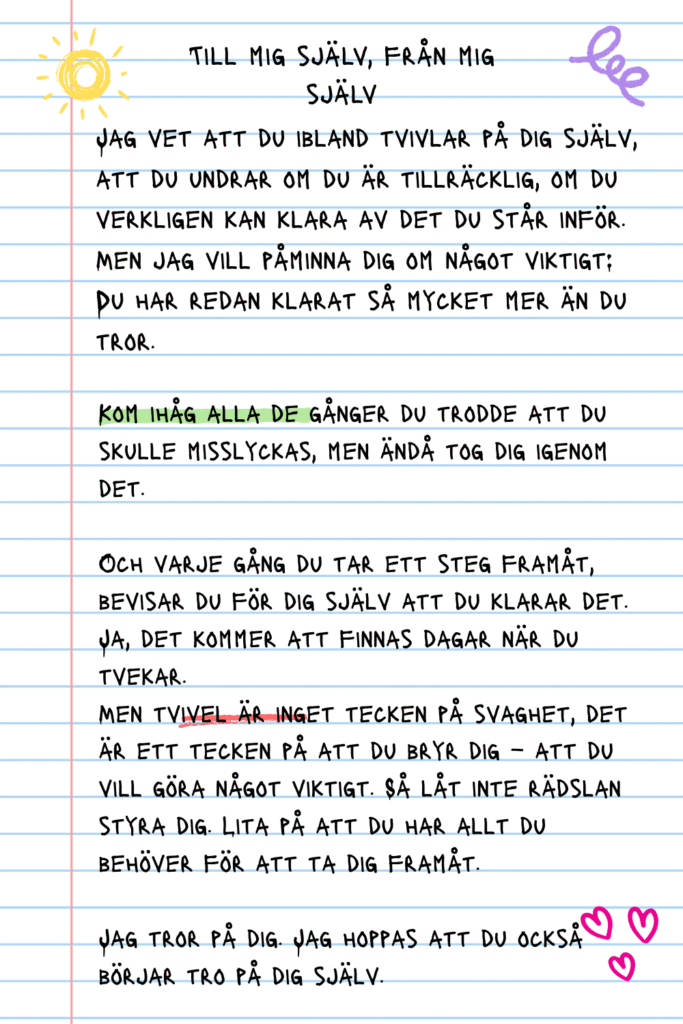 TILL MIG SJÄLV, FRÅN MIG
SJÄLV
JAG VET ATT DU IBLAND TVIVLAR PÅ DIG SJÄLV,
ATT DU UNDRAR OM DU ÄR TILLRÄCKLIG, OM DU
VERKLIGEN KAN KLARA AV DET DU STÅR INFÖR.
MEN JAG VILL PÅMINNA DIG OM NÅGOT VIKTIGT:
DU HAR REDAN KLARAT SÅ MYCKET MER ÄN DU
TROR.
KOM IHÅG ALLA DE GÅNGER DU TRODDE ATT DU
SKULLE MISSLYCKAS, MEN ÄNDÅ TOG DIG IGENOM
DET.
OCH VARJE GÅNG DU TAR ETT STEG FRAMÅT,
BEVISAR DU FÖR DIG SJÄLV ATT DU KLARAR DET.
JA, DET KOMMER ATT FINNAS DAGAR NÄR DU
TVEKAR.
MEN TVIVEL ÄR INGET TECKEN PÅ SVAGHET, DET
ÄR ETT TECKEN PÅ ATT DU BRYR DIG – ATT DU
VILL GÖRA NÅGOT VIKTIGT. SÅ LÅT INTE RÄDSLAN
STYRA DIG. LITA PÅ ATT DU HAR ALLT DU
BEHÖVER FÖR ATT TA DIG FRAMÅT.
JAG TROR PÅ DIG. JAG HOPPAS ATT DU OCKSÅ
BÖRJAR TRO PÅ DIG SJÄLV.